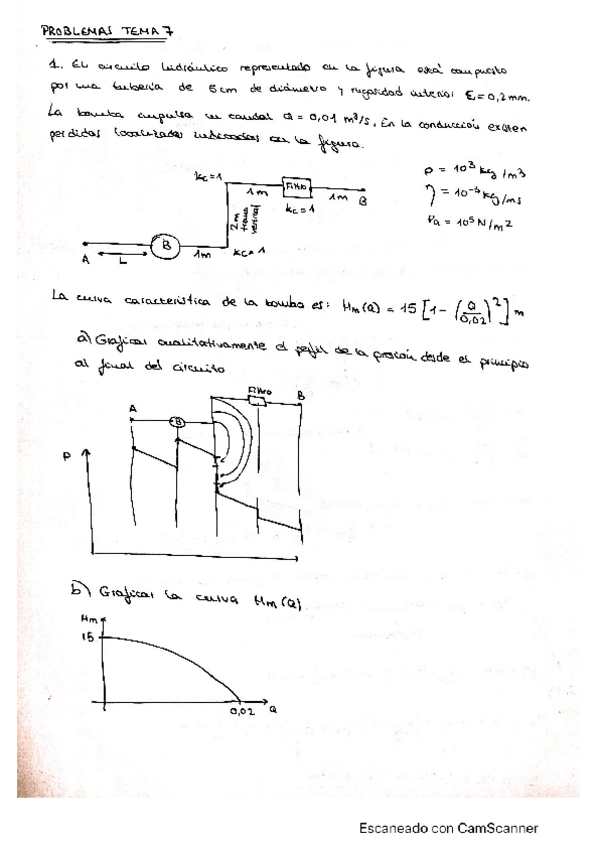 PROBLEMAS TEMA 7
1. El circuito hidráulico representado en la figura está compuesto
por una tubería de 5cm de diámetro y rugosidad interior ε = 0,2mm.
La bomba impulsa un caudal Q = 0,01 m³/s. En la conducción existen
perdidas localizadas indicadas en la figura.
ρ = 10³ kg/m³
η = 10⁻³ kg/ms
Pa = 10⁵ N/m²
kc=1
1m
Filtro
kc=1
1m
B
2m
tramo
vertical
A
L
B
1m
kc=1
La curva característica de la bomba es: Hm(Q) = 15 [1 - (Q/0,02)²] m
a) Graficar cualitativamente el perfil de la presión desde el principio
al final del circuito
A
B
Filtro
B
P
b) Graficar la curva Hm(Q)
Hm
15
0,02
Q
Escaneado con CamScanner